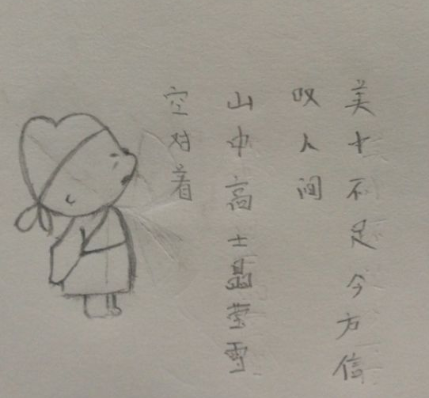 美十不足今方信
叹人间
山中高士晶莹雪
空对着